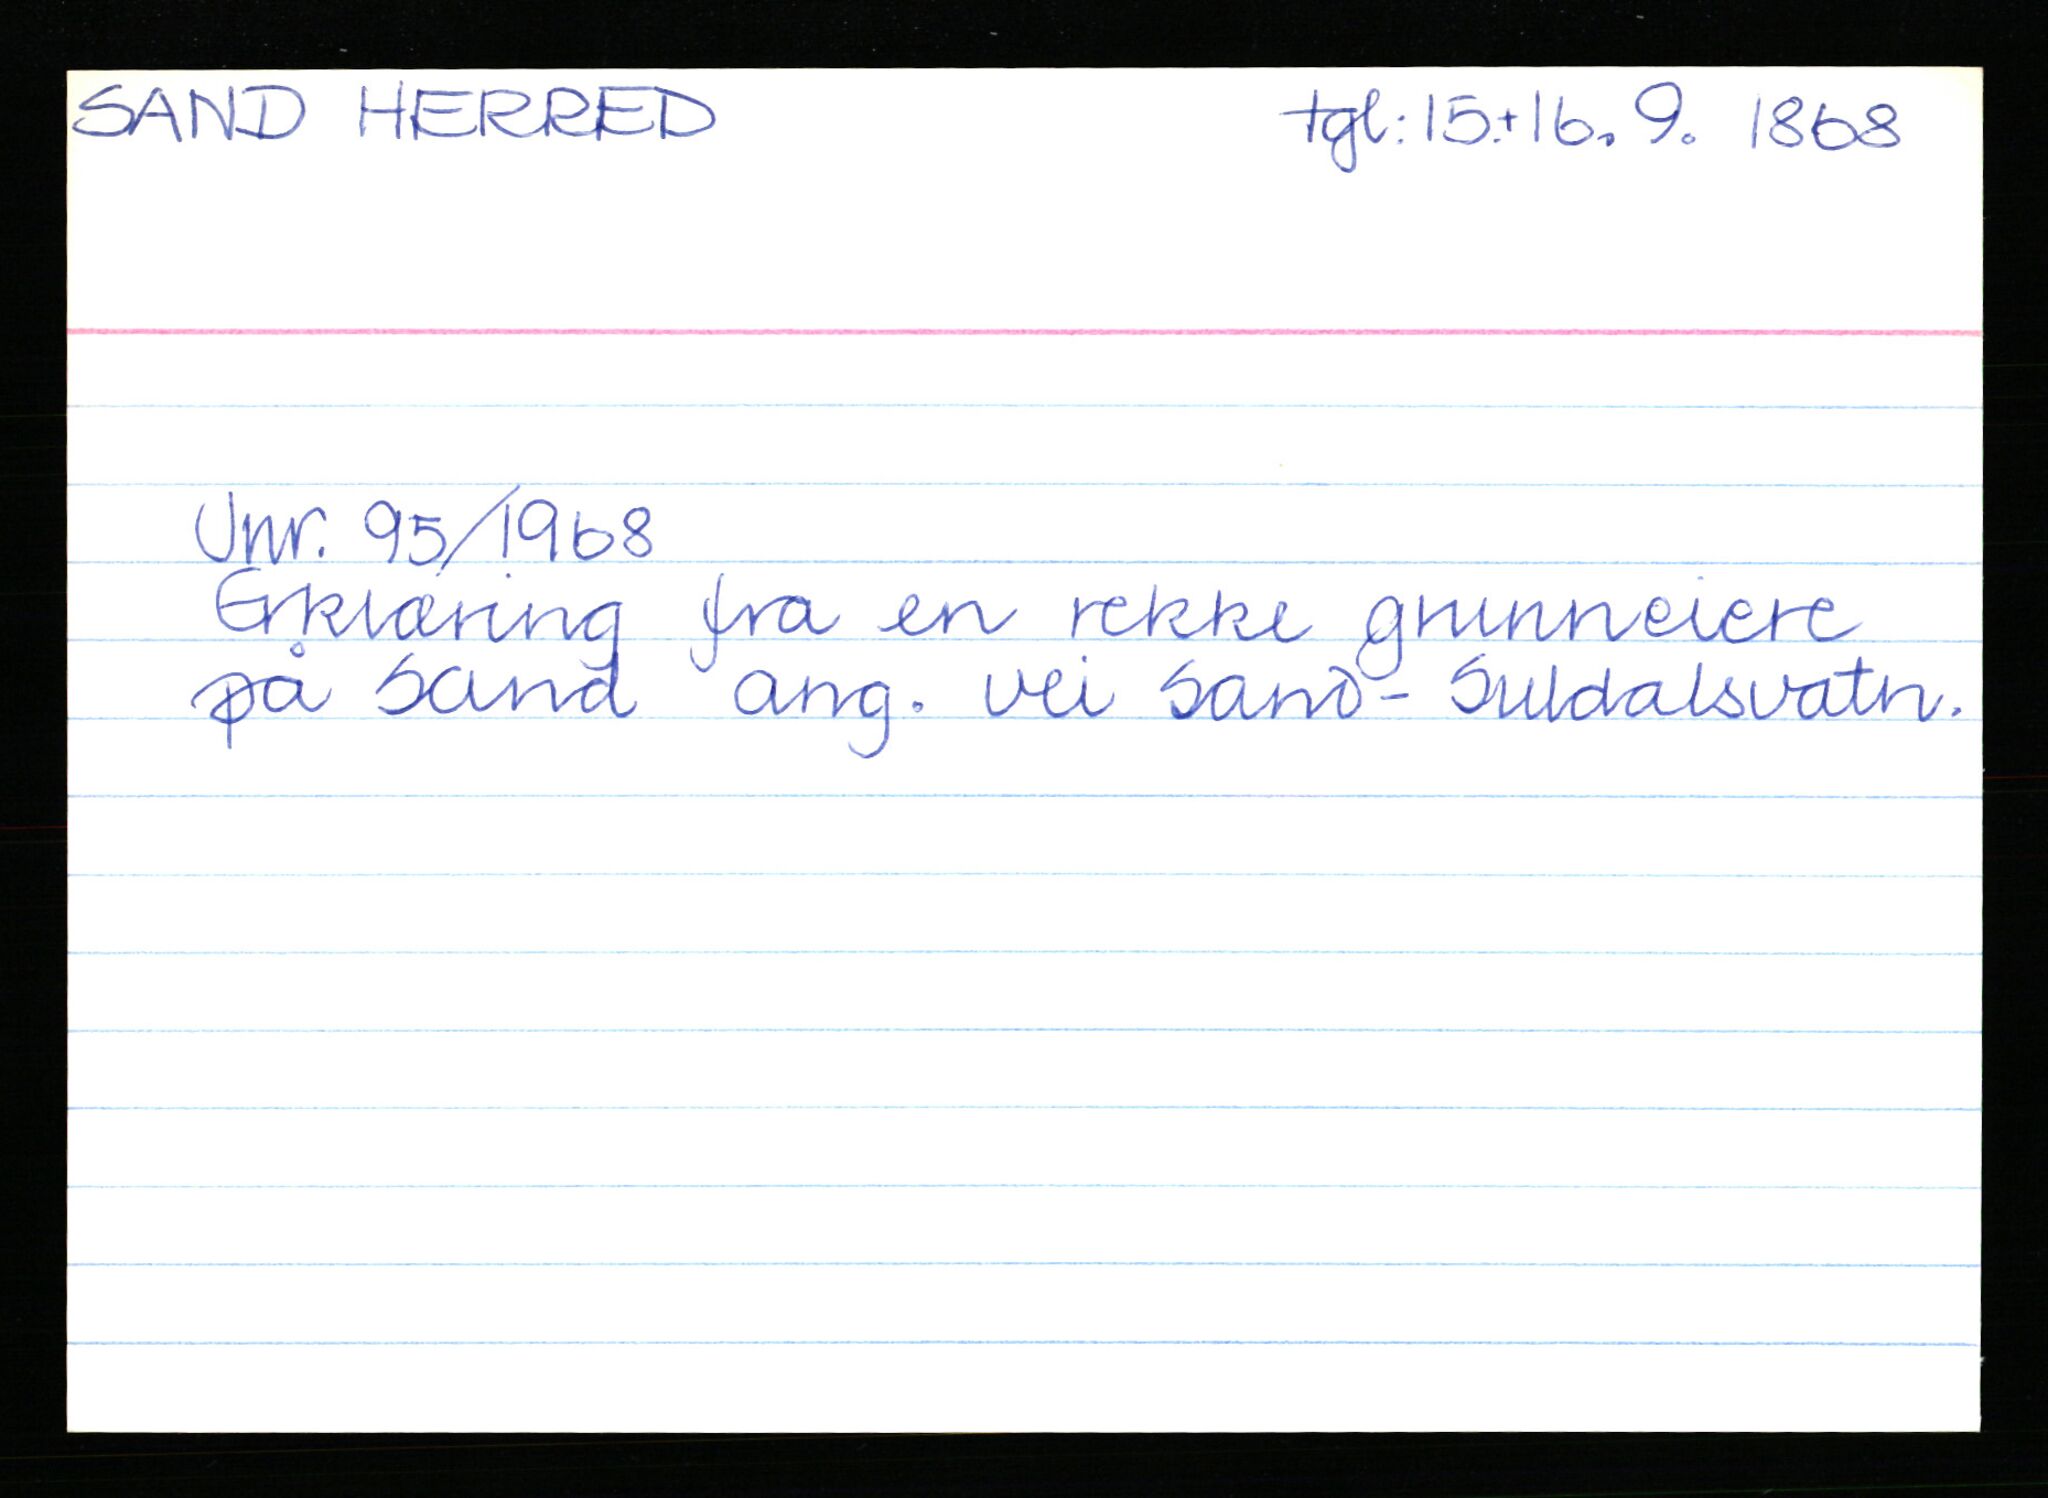 SAND HERRED tgl: 15.+16. 9. 1868
Unr. 95/1968
Erklæring fra en rekke grunneiere
på Sand ang. vei Sand - Suldalsvatn.